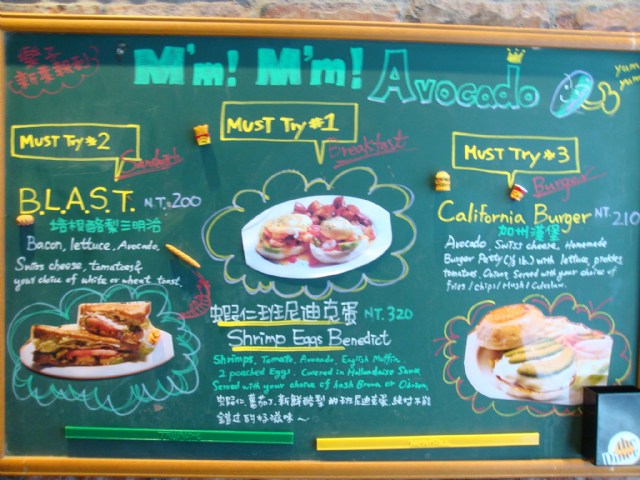 M'm! M'm! Avocado
yum
yum
MUST TRY #2
Sandwich
B.L.A.S.T. NT.200
培根酪梨三明治
Bacon, lettuce, Avocado,
Swiss cheese, tomatoes &
your choice of white or wheat toast
MUST TRY #1
Breakfast
蝦仁班尼迪克蛋 NT.320
Shrimp Eggs Benedict
Shrimps, Tomato, Avocado, English Muffin.
2 poached Eggs. Covered in Hollandaise Sauce
Served with your choice of hash Brown or
蕃茄丁, 新鮮酪梨 的班尼迪克蛋, 絕對不能
錯過的好滋味~
MUST TRY #3
Burger
California Burger NT.210
加州漢堡
Avocado, Swiss cheese, Homemade
Burger Patty (1/3 lb.) with lettuce, pickles
tomatoes, Onions Served with your choice of
fries / chips / Mash / Coleslaw.
the
Diner